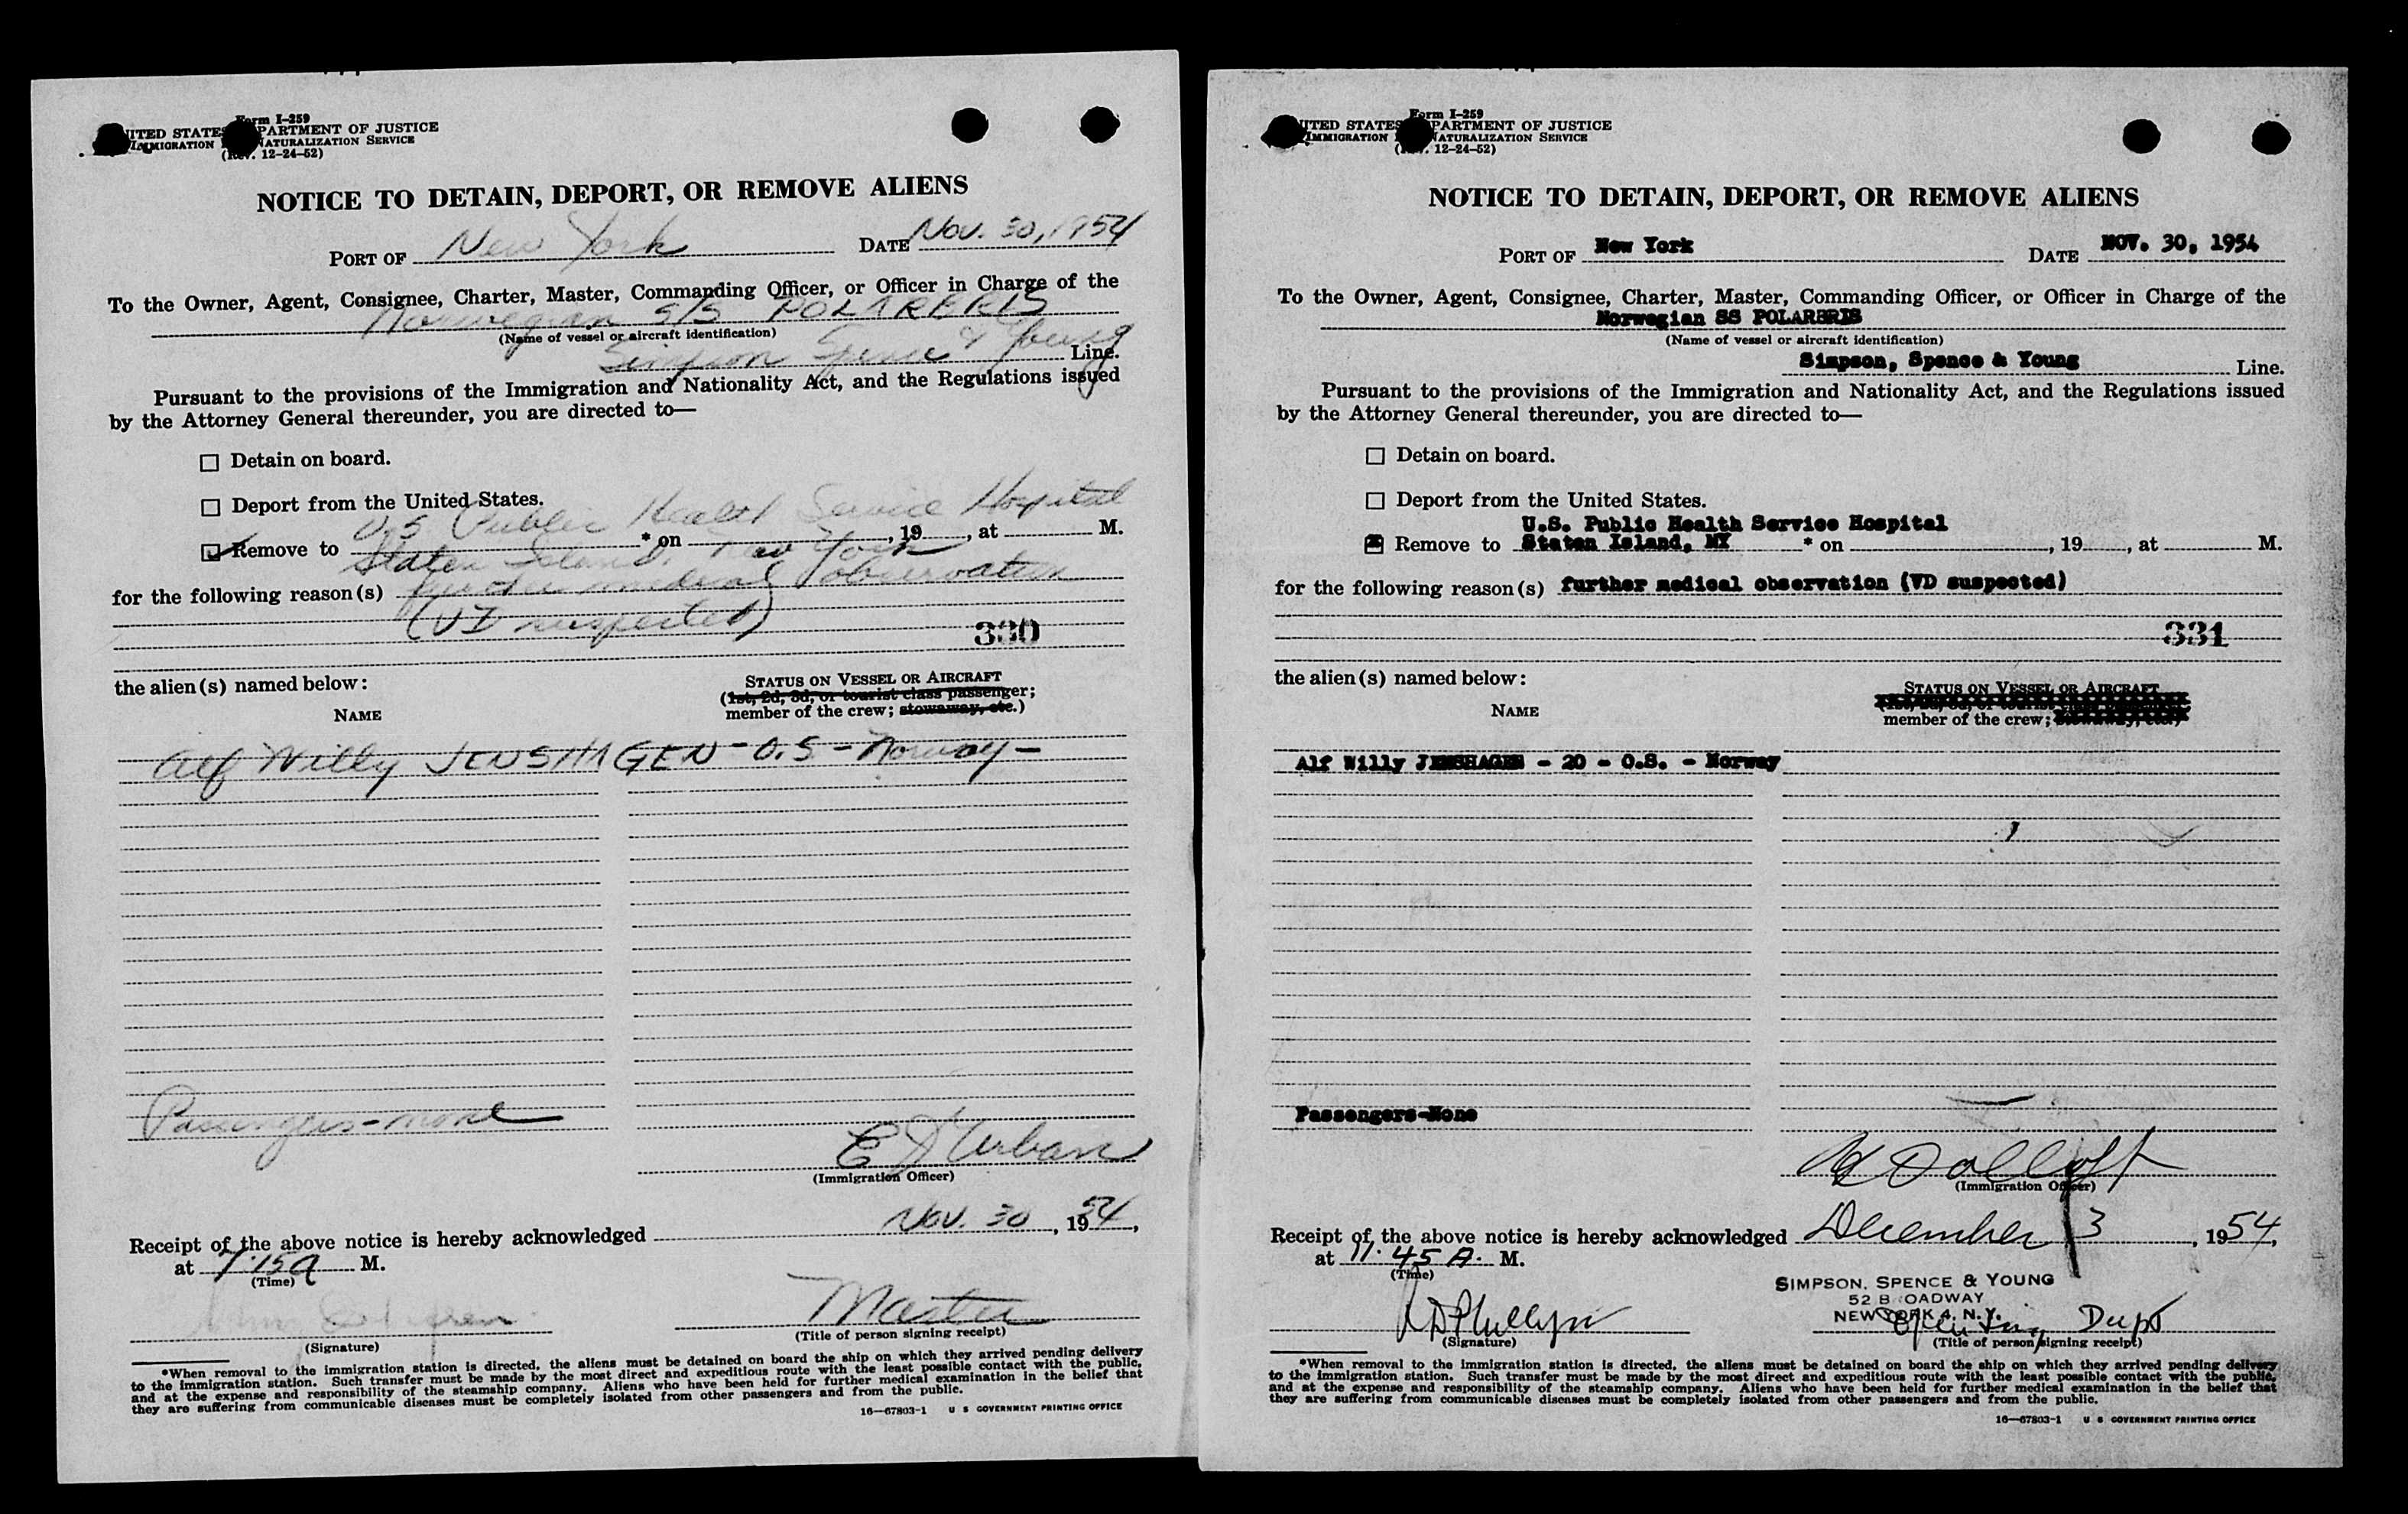 Form I-259
UNITED STATES DEPARTMENT OF JUSTICE
IMMIGRATION NATURALIZATION SERVICE
(Rev. 12-24-52)
NOTICE TO DETAIN, DEPORT, OR REMOVE ALIENS
PORT OF New York DATE Nov. 30, 1954
To the Owner, Agent, Consignee, Charter, Master, Commanding Officer, or Officer in Charge of the
Norwegian S/S POLARERIS
(Name of vessel or aircraft identification)
Simpson Spence & Young Line.
Pursuant to the provisions of the Immigration and Nationality Act, and the Regulations issued
by the Attorney General thereunder, you are directed to—
☐ Detain on board.
☐ Deport from the United States.
U.S. Public Health Service Hospital
☑ Remove to Staten Island, New York * on , 19 , at M.
for the following reason(s) further medical observation
(VD suspected)
330
the alien(s) named below:
STATUS ON VESSEL OR AIRCRAFT
(1st, 2d, 3d, or tourist class passenger;
member of the crew; stowaway, etc.)
NAME
Alf Willy JENSHAGEN - O.S - Norway -
Passengers - none
E Urban
(Immigration Officer)
Receipt of the above notice is hereby acknowledged Nov. 30, 1954,
at 7:15 A M.
(Time)
Master
(Signature)
(Title of person signing receipt)
*When removal to the immigration station is directed, the aliens must be detained on board the ship on which they arrived pending delivery
to the immigration station. Such transfer must be made by the most direct and expeditious route with the least possible contact with the public,
and at the expense and responsibility of the steamship company. Aliens who have been held for further medical examination in the belief that
they are suffering from communicable diseases must be completely isolated from other passengers and from the public.
16—67803-1 U S GOVERNMENT PRINTING OFFICE
Form I-259
UNITED STATES DEPARTMENT OF JUSTICE
IMMIGRATION NATURALIZATION SERVICE
(Rev. 12-24-52)
NOTICE TO DETAIN, DEPORT, OR REMOVE ALIENS
PORT OF New York DATE NOV. 30, 1954
To the Owner, Agent, Consignee, Charter, Master, Commanding Officer, or Officer in Charge of the
Norwegian SS POLARERIS
(Name of vessel or aircraft identification)
Simpson, Spence & Young Line.
Pursuant to the provisions of the Immigration and Nationality Act, and the Regulations issued
by the Attorney General thereunder, you are directed to—
☐ Detain on board.
☐ Deport from the United States.
U.S. Public Health Service Hospital
☒ Remove to Staten Island, NY * on , 19 , at M.
for the following reason(s) further medical observation (VD suspected)
331
the alien(s) named below:
STATUS ON VESSEL OR AIRCRAFT
member of the crew;
NAME
Alf Willy JENSHAGEN - 20 - O.S. - Norway
Passengers-None
(Immigration Officer)
Receipt of the above notice is hereby acknowledged December 3, 1954,
at 11:45 A. M.
(Time)
SIMPSON, SPENCE & YOUNG
52 BROADWAY
NEW YORK 4, N.Y.
Dept
(Signature)
(Title of person signing receipt)
*When removal to the immigration station is directed, the aliens must be detained on board the ship on which they arrived pending delivery
to the immigration station. Such transfer must be made by the most direct and expeditious route with the least possible contact with the public,
and at the expense and responsibility of the steamship company. Aliens who have been held for further medical examination in the belief that
they are suffering from communicable diseases must be completely isolated from other passengers and from the public.
16—67803-1 U S GOVERNMENT PRINTING OFFICE